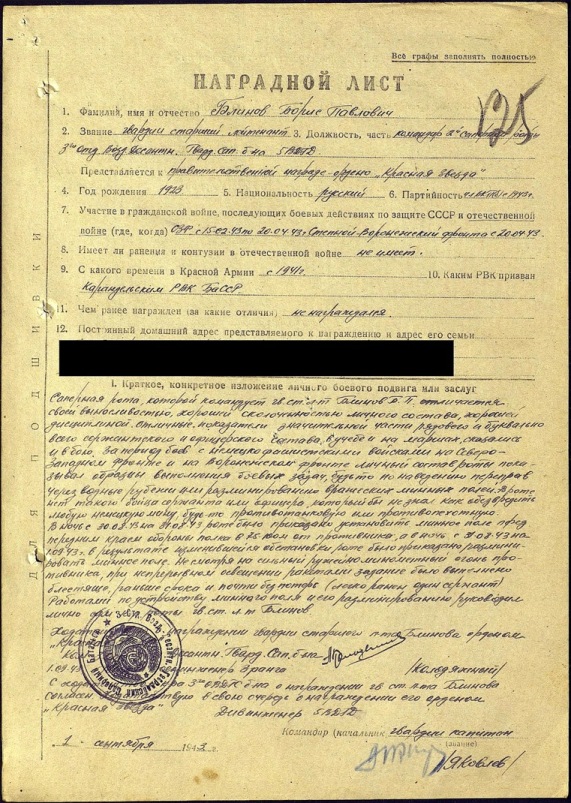 Все графы заполнять полностью
НАГРАДНОЙ ЛИСТ
125
1. Фамилия, имя и отчество Блинов Борис Павлович
2. Звание гвардии старший лейтенант 3. Должность, часть командир 2ой саперной роты
3го Отд. Возд. Десантн. Гвард. Сап. б-на 5 ВДГД
Представляется к правительственной награде - ордену „Красная звезда"
4. Год рождения 1923 5. Национальность русский 6. Партийность с 1943г.
7. Участие в гражданской войне, последующих боевых действиях по защите СССР и отечественной
войне (где, когда) СЗФ с 15-02-43 по 20.04.43 Степной Воронежский фронт с 20.04.43
8. Имеет ли ранения и контузии в отечественной войне не имеет.
9. С какого времени в Красной Армии с 1941г. 10. Каким РВК призван
Караидельским РВК БаССР
11. Чем ранее награжден (за какие отличия) не награждался.
12. Постоянный домашний адрес представляемого к награждению и адрес его семьи
I. Краткое, конкретное изложение личного боевого подвига или заслуг
Саперная рота, которой командует гв. ст. л-т Блинов Б.П. отличается
своей выносливостью, хорошей сколоченностью личного состава, хорошей
дисциплиной. Отличные показатели значительной части рядового и буквально
всего сержантского и офицерского состава, в учебе и на маршах, сказались
и в бою. За период боев с немецко фашистскими войсками на Северо-
Западном фронте и на Воронежском фронте личный состав роты пока-
зывал образцы выполнения боевых задач, будь то по наведению переправ
через водные рубежи или разминированию вражеских минных полей. В роте
нет такого бойца сержанта или офицера, который бы не знал как обезвредить
любую немецкую мину, будь то противотанковую или противопехотную.
В ночь с 30.08.43 на 31.08.43 роте было приказано установить минное поле перед
передним краем обороны полка в 75 том от противника, а в ночь с 31.08.43 на
1.09.43, в результате изменившейся обстановки, роте было приказано размини-
ровать минное поле. Не смотря на сильный ружейно минометный огонь про-
тивника, при непрерывном освещении ракетами задание было выполнено
блестяще, раньше срока и почти без потерь (легко ранен один сержант)
Работами по установке минного поля и его разминированию руководил
лично гв. ст. л-т Блинов
Ходатайствую о награждении гвардии старшего л-та Блинова орденом
„Красная
Десантн. Гвард. Сап. б-на
1.09.43 инженер 3 ранга /Колодяжный/
С ходатайством 3го б-на о награждении гв. ст. л-та Блинова
согласен в свою очередь о награждении его орденом
„Красная звезда" Дивинженер 5 ВДГД
Командир (начальник гвардии капитан
(звание)
1 сентября 1943 г. /Яковлев/
Для подшивки